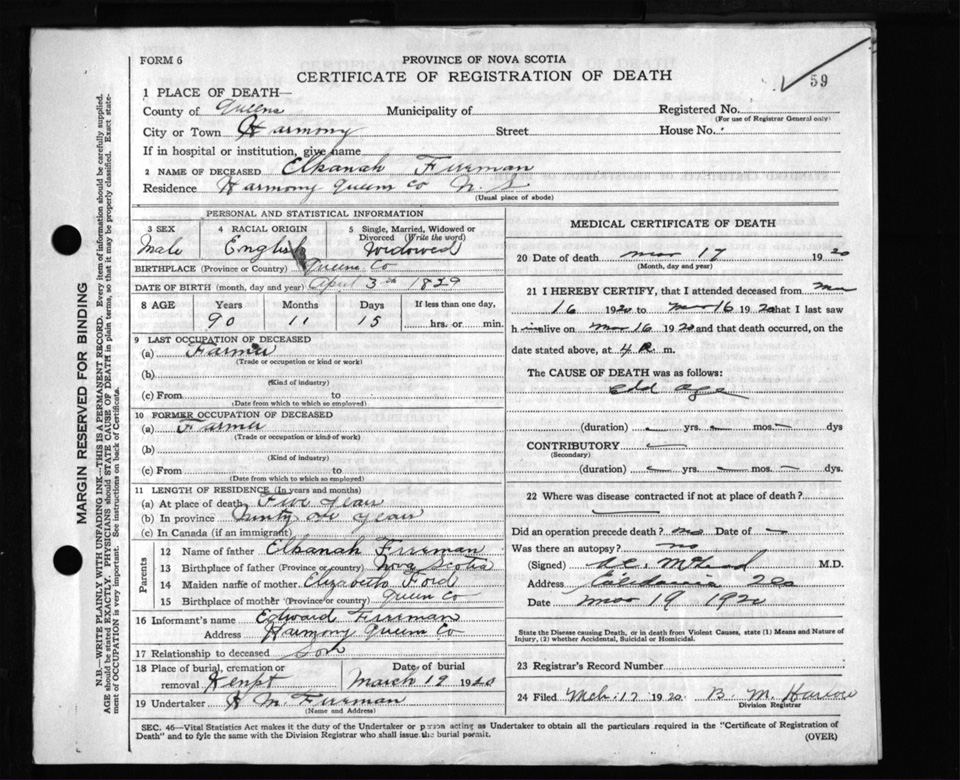 FORM 6
PROVINCE OF NOVA SCOTIA
CERTIFICATE OF REGISTRATION OF DEATH
59
1 PLACE OF DEATH—
County of Queens Municipality of Registered No.
(For use of Registrar General only)
City or Town Harmony Street House No.
If in hospital or institution, give name
2 NAME OF DECEASED Elkanah Freeman
Residence Harmony Queens Co N. S
(Usual place of abode)
PERSONAL AND STATISTICAL INFORMATION
3 SEX 4 RACIAL ORIGIN 5 Single, Married, Widowed or Divorced (Write the word)
Male English Widowed
BIRTHPLACE (Province or Country) Queens Co
DATE OF BIRTH (month, day and year) April 3rd 1829
8 AGE Years Months Days If less than one day,
90 11 15 hrs. or min.
9 LAST OCCUPATION OF DECEASED
(a) Farmer
(Trade or occupation or kind or work)
(b)
(Kind of industry)
(c) From to
(Date from which to which so employed)
10 FORMER OCCUPATION OF DECEASED
(a) Farmer
(Trade or occupation or kind of work)
(b)
(Kind of industry)
(c) From to
(Date from which to which so employed)
11 LENGTH OF RESIDENCE (In years and months)
(a) At place of death Five years
(b) In province Ninty one years
(c) In Canada (if an immigrant)
Parents
12 Name of father Elkanah Freeman
13 Birthplace of father (Province or country) Nova Scotia
14 Maiden name of mother Elizabeth Ford
15 Birthplace of mother (Province or country) Queen Co
16 Informant's name Edward Freeman
Address Harmony Queens Co
17 Relationship to deceased Son
18 Place of burial, cremation or removal Kempt Date of burial March 19 1920
19 Undertaker M. Freeman
(Name and Address)
MEDICAL CERTIFICATE OF DEATH
20 Date of death Mar 17 1920
(Month, day and year)
21 I HEREBY CERTIFY, that I attended deceased from Mar
16 1920 to Mar 16 1920 that I last saw
h im alive on Mar 16 1920 and that death occurred, on
date stated above, at 4 m.
The CAUSE OF DEATH was as follows:
old age
(duration) yrs. mos. dys
CONTRIBUTORY
(Secondary)
(duration) yrs. mos. dys.
22 Where was disease contracted if not at place of death?
Did an operation precede death? no Date of
Was there an autopsy? no
(Signed) McLeod M.D.
Address Caledonia
Date Mar 19 1920
State the Disease causing Death, or in death from Violent Causes, state (1) Means and Nature of
Injury, (2) whether Accidental, Suicidal or Homicidal.
23 Registrar's Record Number
24 Filed Mch. 17 1920 B. M. Harlow
Division Registrar
SEC. 46—Vital Statistics Act makes it the duty of the Undertaker or person acting as Undertaker to obtain all the particulars required in the "Certificate of Registration of
Death" and to fyle the same with the Division Registrar who shall issue the burial permit. (OVER)
MARGIN RESERVED FOR BINDING
N.B.—WRITE PLAINLY WITH UNFADING INK—THIS IS A PERMANENT RECORD. Every item of information should be carefully supplied.
AGE should be stated EXACTLY. PHYSICIANS should STATE CAUSE OF DEATH in plain terms, so that it may be properly classified. Exact statement of OCCUPATION is very important. See instructions on back of Certificate.